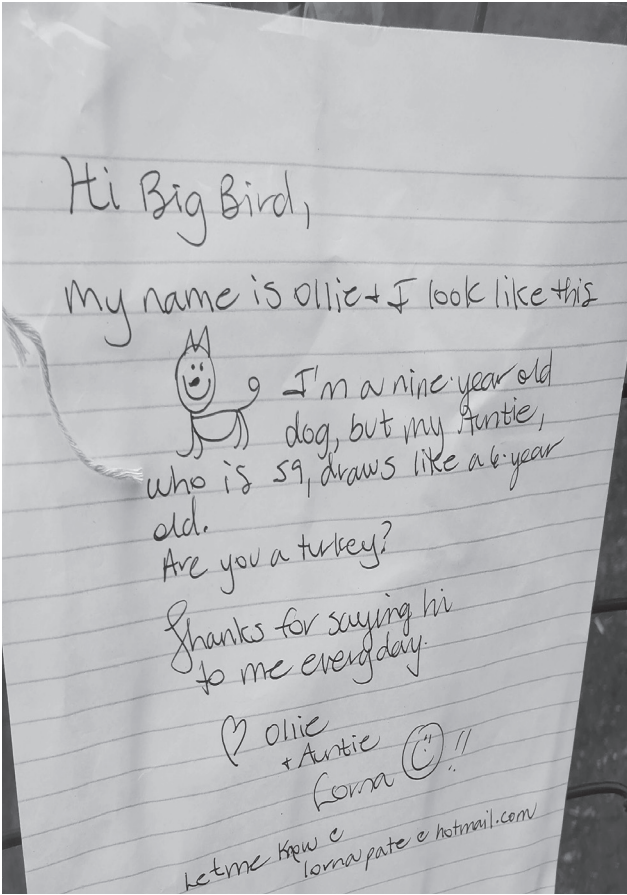 Hi Big Bird,
My name is Ollie + I look like this
I'm a nine-year old
dog, but my Auntie,
who is 59, draws like a 6-year
old.
Are you a turkey?
Thanks for saying hi
to me everyday.
♡ Ollie
+ Auntie
Lorna ☺!!
Let me know @
lornapate@hotmail.com